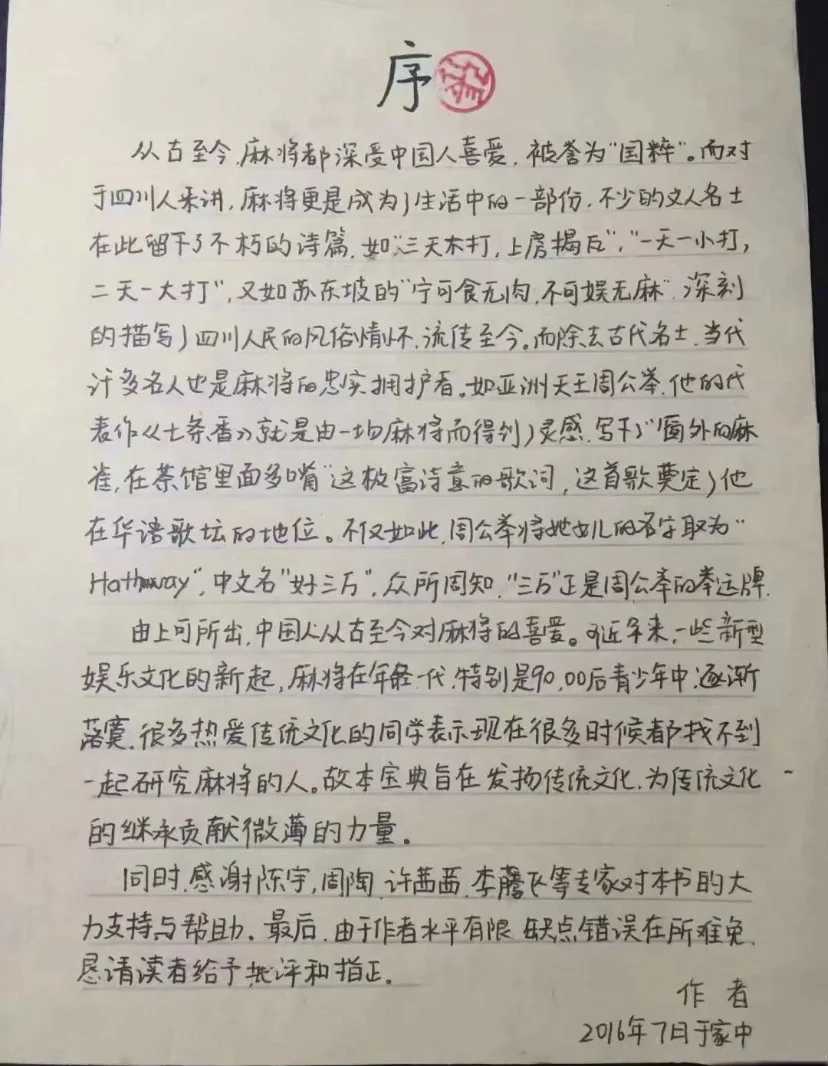 序
从古至今,麻将都深受中国人喜爱,被誉为"国粹"。而对
于四川人来讲,麻将更是成为了生活中的一部份,不少的文人名士
在此留下了不朽的诗篇,如"三天不打,上房揭瓦","一天一小打,
二天一大打",又如苏东坡的"宁可食无肉,不可娱无麻",深刻
的描写了四川人民的风俗情怀,流传至今。而除去古代名士,当代
许多名人也是麻将的忠实拥护者。如亚洲天王周公举,他的代
表作《七条香》就是由一场麻将而得到了灵感,写下了"窗外的麻
雀,在茶馆里面多嘴"这极富诗意的歌词,这首歌奠定了他
在华语歌坛的地位。不仅如此,周公举将她女儿的名字取为"
Hathaway",中文名"好三万",众所周知,"三万"正是周公举的幸运牌.
由上可所出,中国人从古至今对麻将的喜爱。可近年来,一些新型
娱乐文化的新起,麻将在年轻一代,特别是90,00后青少年中,逐渐
落寞,很多热爱传统文化的同学表示现在很多时候都找不到
一起研究麻将的人。故本宝典旨在发扬传统文化,为传统文化
的继承贡献微薄的力量。
同时,感谢陈宇,周陶,许茜西,李腾飞等专家对本书的大
力支持与帮助。最后,由于作者水平有限,缺点错误在所难免,
恳请读者给予批评和指正。
作者
2016年7日于家中